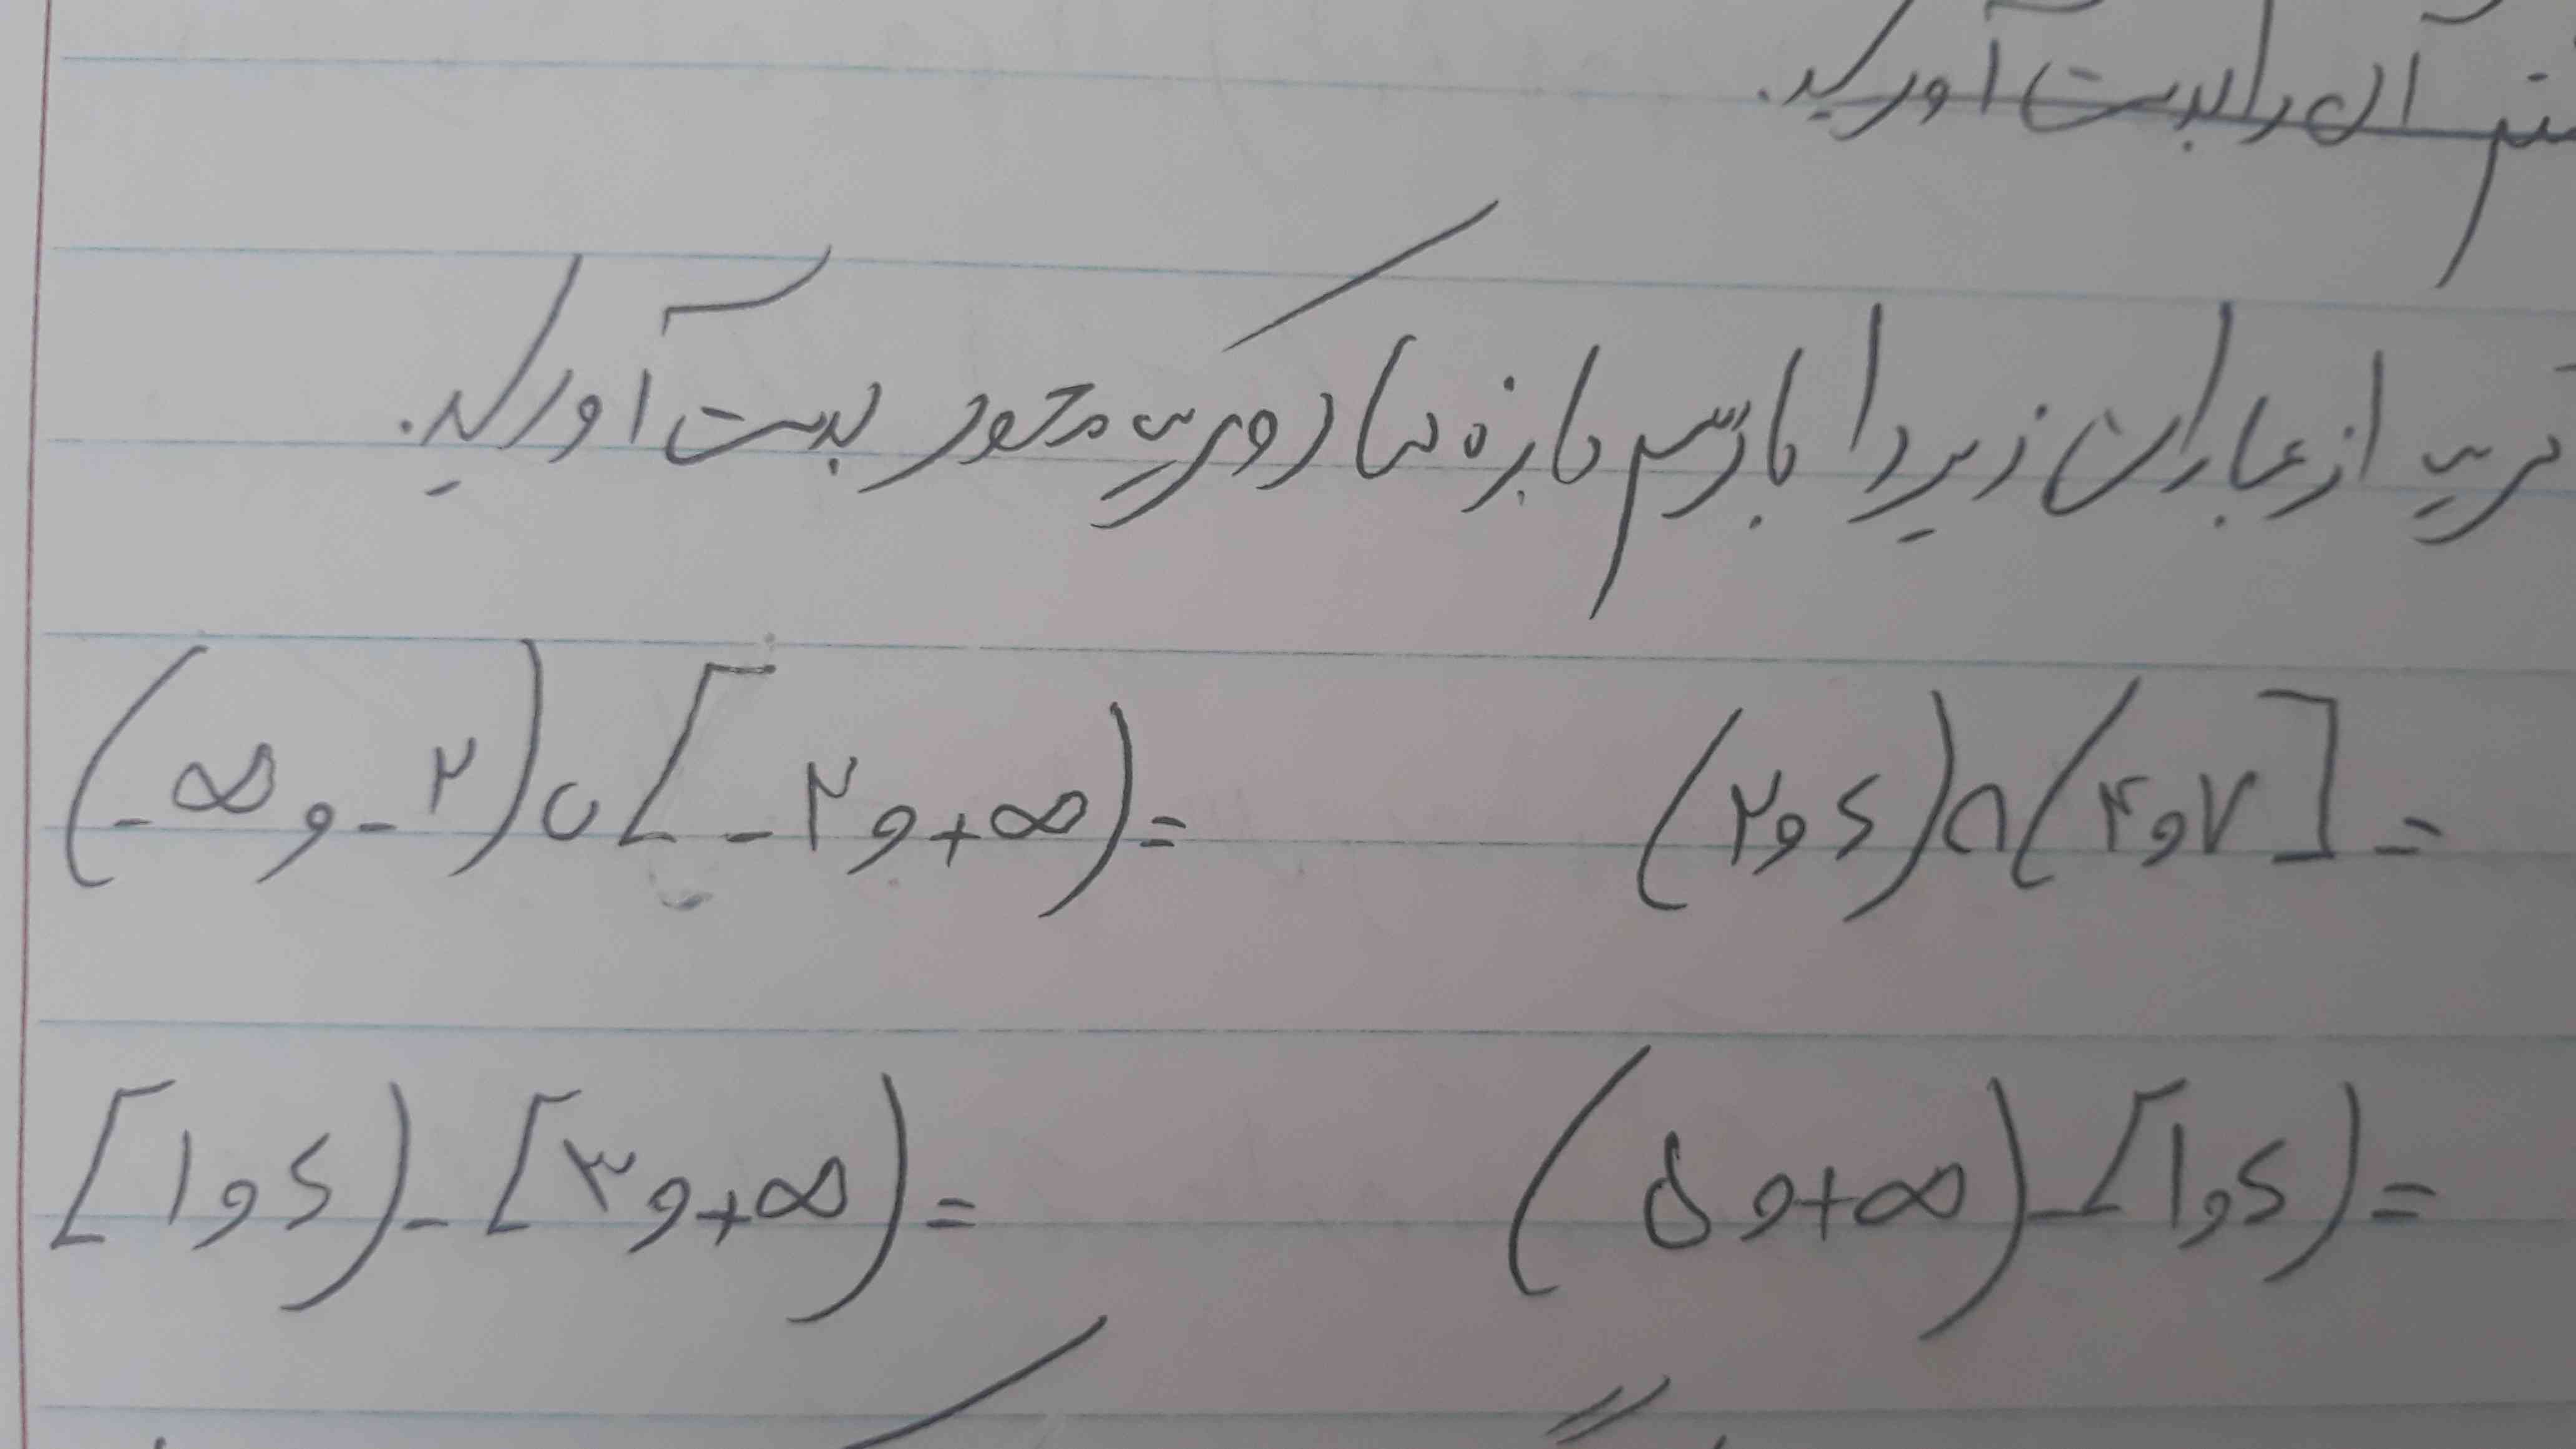 آن را بدست آورید.
هریک از عبارات زیر را با رسم بازه ها روی یک محور بدست آورید.
(-∞ و -۲) ∪ [-۲ و +∞) = (۲ و ۶) ∩ (۴ و ۷] =
[۱ و ۶) - [۳ و +∞) = (۵ و +∞) - [۱ و ۶) =